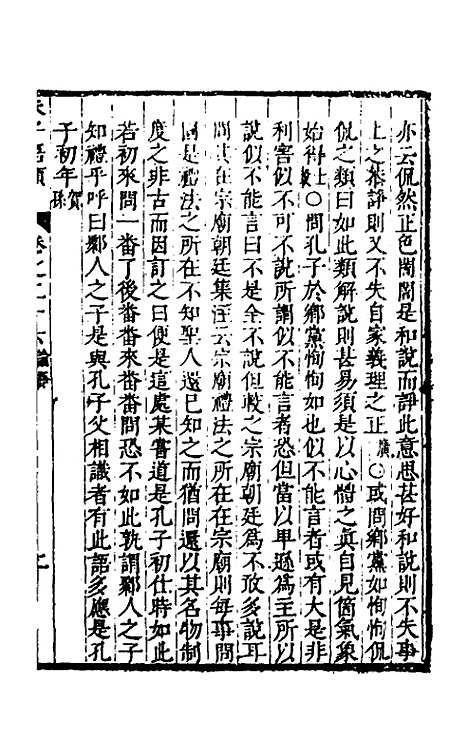 亦云侃然正色誾誾是和說而諍此意思甚好和說則不失事
上之恭諍則又不失自家義理之正廣〇或問鄉黨如恂恂侃
侃之類曰如此類解說則甚易須是以心體之眞自見箇氣象
始得士毅〇問孔子於鄉黨恂恂如也似不能言者或有大是非
利害似不可不說所謂似不能言者恐但當以卑遜爲主所以
說似不能言曰不是全不說但較之宗廟朝廷爲不敢多說耳
問其在宗廟朝廷集注云宗廟禮法之所在在宗廟則每事問
固是禮法之所在不知聖人還已知之而猶問還以其名物制
度之非古而因訂之曰便是這處某嘗道是孔子初仕時如此
若初來問一番了後番番來番番問恐不如此孰謂鄹人之子
知禮乎呼曰鄹人之子是與孔子父相識者有此語多應是孔
子初年賀孫